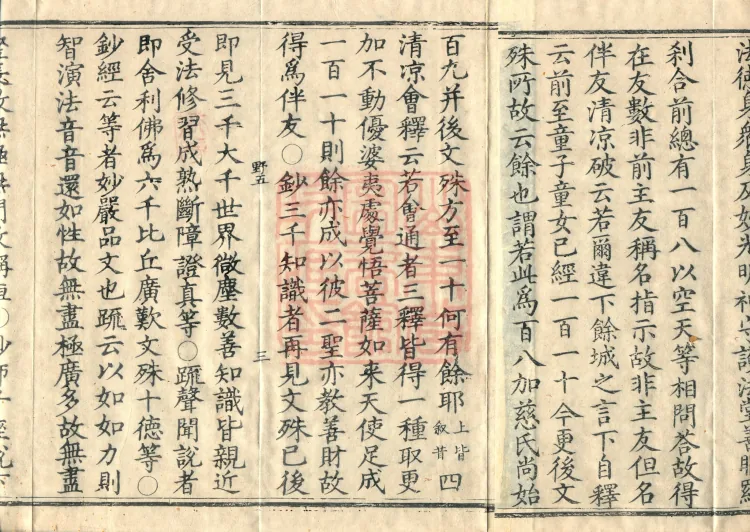 利合前總有一百八以空天等相問答故得
在友數非前主友稱名指示故非主友但名
伴友清涼破云若爾違下餘城之言下自釋
云前至童子童女已經一百一十今更後文
殊所故云餘也謂若此爲百八加慈氏尚始
百九并後文殊方至一十何有餘耶上皆叙昔四
清涼會釋云若會通者三釋皆得一種取更
加不動優婆夷處覺悟菩薩如来天使足成
一百一十則餘亦成以彼二聖亦教善財故
得爲伴友〇鈔三千知識者再見文殊已後
野五
三
即見三千大千世界微塵數善知識皆親近
受法修習成熟斷障證真等〇䟽聲聞說者
即舍利佛爲六千比丘廣歎文殊十德等〇
鈔經云等者妙嚴品文也䟽云以如如力則
智演法音音還如性故無盡極廣多故無盡